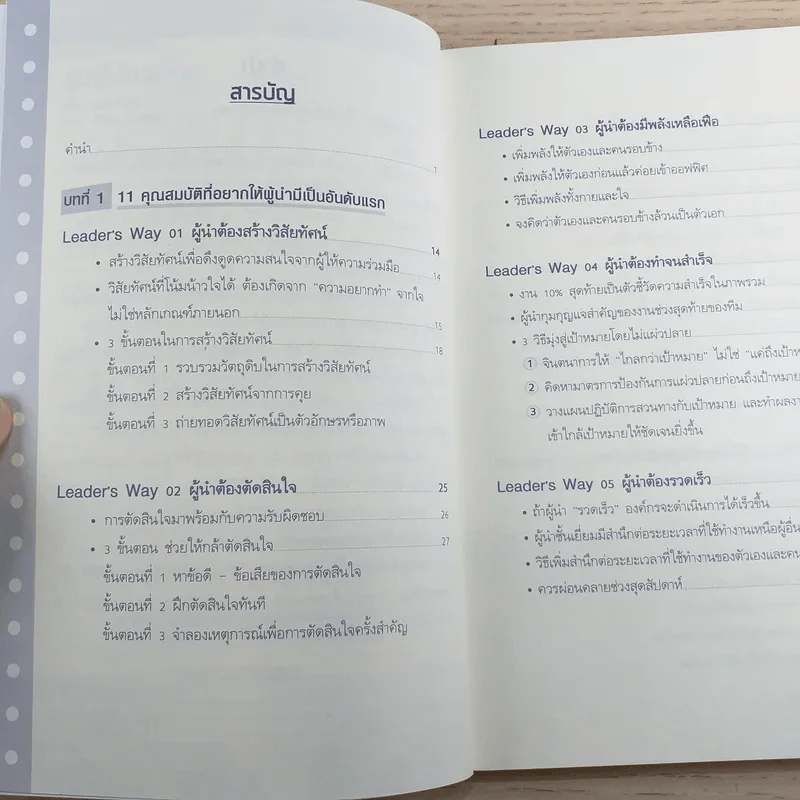 สารบัญ
คำนำ 1
บทที่ 1 11 คุณสมบัติที่อยากให้ผู้นำมีเป็นอันดับแรก
Leader's Way 01 ผู้นำต้องสร้างวิสัยทัศน์ 14
• สร้างวิสัยทัศน์เพื่อดึงดูดความสนใจจากผู้ให้ความร่วมมือ 14
• วิสัยทัศน์ที่โน้มน้าวใจได้ ต้องเกิดจาก "ความอยากทำ" จากใจ
ไม่ใช่หลักเกณฑ์ภายนอก 15
• 3 ขั้นตอนในการสร้างวิสัยทัศน์ 18
ขั้นตอนที่ 1 รวบรวมวัตถุดิบในการสร้างวิสัยทัศน์
ขั้นตอนที่ 2 สร้างวิสัยทัศน์จากการคุย
ขั้นตอนที่ 3 ถ่ายทอดวิสัยทัศน์เป็นตัวอักษรหรือภาพ
Leader's Way 02 ผู้นำต้องตัดสินใจ 25
• การตัดสินใจมาพร้อมกับความรับผิดชอบ 26
• 3 ขั้นตอน ช่วยให้กล้าตัดสินใจ 27
ขั้นตอนที่ 1 หาข้อดี – ข้อเสียของการตัดสินใจ
ขั้นตอนที่ 2 ฝึกตัดสินใจทันที
ขั้นตอนที่ 3 จำลองเหตุการณ์เพื่อการตัดสินใจครั้งสำคัญ
Leader's Way 03 ผู้นำต้องมีพลังเหลือเฟือ
• เพิ่มพลังให้ตัวเองและคนรอบข้าง
• เพิ่มพลังให้ตัวเองก่อนแล้วค่อยเข้าออฟฟิศ
• วิธีเพิ่มพลังทั้งกายและใจ
• จงคิดว่าตัวเองและคนรอบข้างล้วนเป็นตัวเอก
Leader's Way 04 ผู้นำต้องทำจนสำเร็จ
• งาน 10% สุดท้ายเป็นตัวชี้วัดความสำเร็จในภาพรวม
• ผู้นำกุมกุญแจสำคัญของงานช่วงสุดท้ายของทีม
• 3 วิธีมุ่งสู่เป้าหมายโดยไม่แผ่วปลาย
① จินตนาการให้ "ไกลกว่าเป้าหมาย" ไม่ใช่ "แค่ถึงเป้าห
② คิดหามาตรการป้องกันการแผ่วปลายก่อนถึงเป้าหมาย
③ วางแผนปฏิบัติการสวนทางกับเป้าหมาย และทำผลงา
เข้าใกล้เป้าหมายให้ชัดเจนยิ่งขึ้น
Leader's Way 05 ผู้นำต้องรวดเร็ว
• ถ้าผู้นำ "รวดเร็ว" องค์กรจะดำเนินการได้เร็วขึ้น
• ผู้นำชั้นเยี่ยมมีสำนึกต่อระยะเวลาที่ใช้ทำงานเหนือผู้อื่น
• วิธีเพิ่มสำนึกต่อระยะเวลาที่ใช้ทำงานของตัวเองและคน
• ควรผ่อนคลายช่วงสุดสัปดาห์